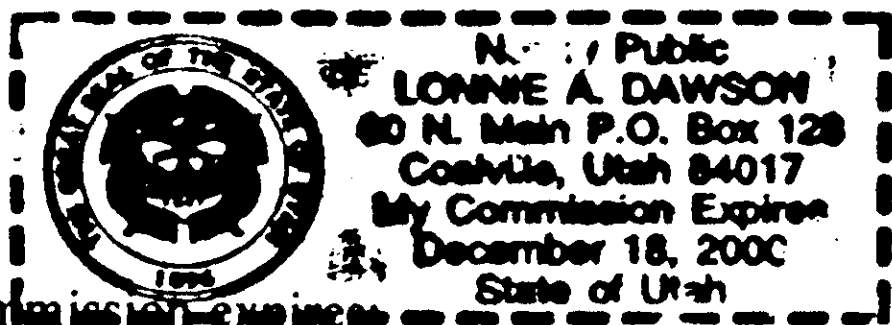 THE GREAT SEAL OF THE STATE OF UTAH
1896
Public
LONNIE A. DAWSON
N. Main P.O. Box 128
Coalville, Utah 84017
My Commission Expires
December 18, 2000
State of Utah
mmission expires: